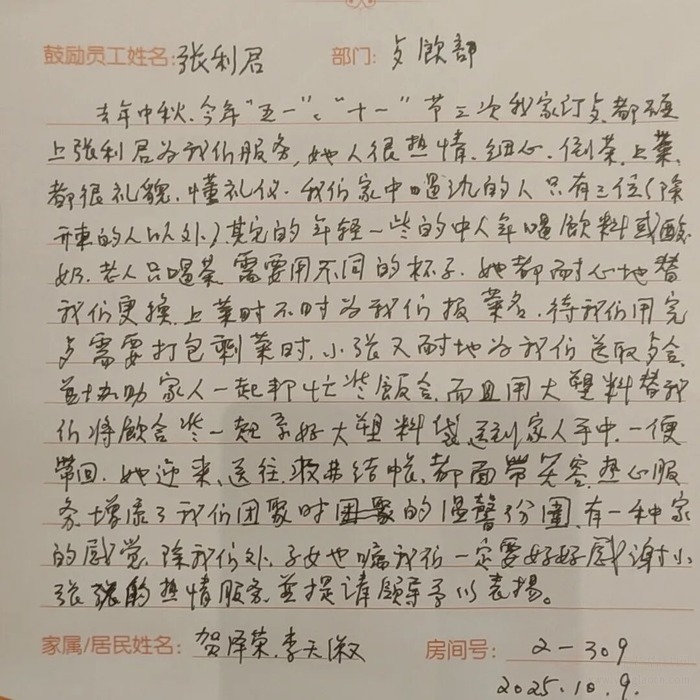 鼓励员工姓名:张利君 部门:歺饮部
去年中秋、今年“五一”、“十一”节三次我家订歺都碰
上张利君为我们服务,她人很热情、细心、倒茶、上菜、
都很礼貌、懂礼仪。我们家中喝酒的人只有三位(除
开车的人以外)其它的年轻一些的中人年喝饮料或酸
奶、老人只喝茶需要用不同的杯子、她都耐心地替
我们更换、上菜时不时为我们报菜名、待我们用完
歺需要打包剩菜时、小张又耐地为我们送取歺盒、
並协助家人一起帮忙装饭盒、而且用大塑料替我
们将饭盒装一起系好大塑料袋送到家人手中、一便
带回、她迎来、送往、收歺结帐、都面带笑容、热心服
务、增添了我们团聚时的温馨份围、有一种家
的感觉、除我们外、子女也嘱我们一定要好好感谢小
张的热情服务、並提请领导予以表扬。
家属/居民姓名:贺泽荣、李天淑 房间号:2-309
2025.10.9.